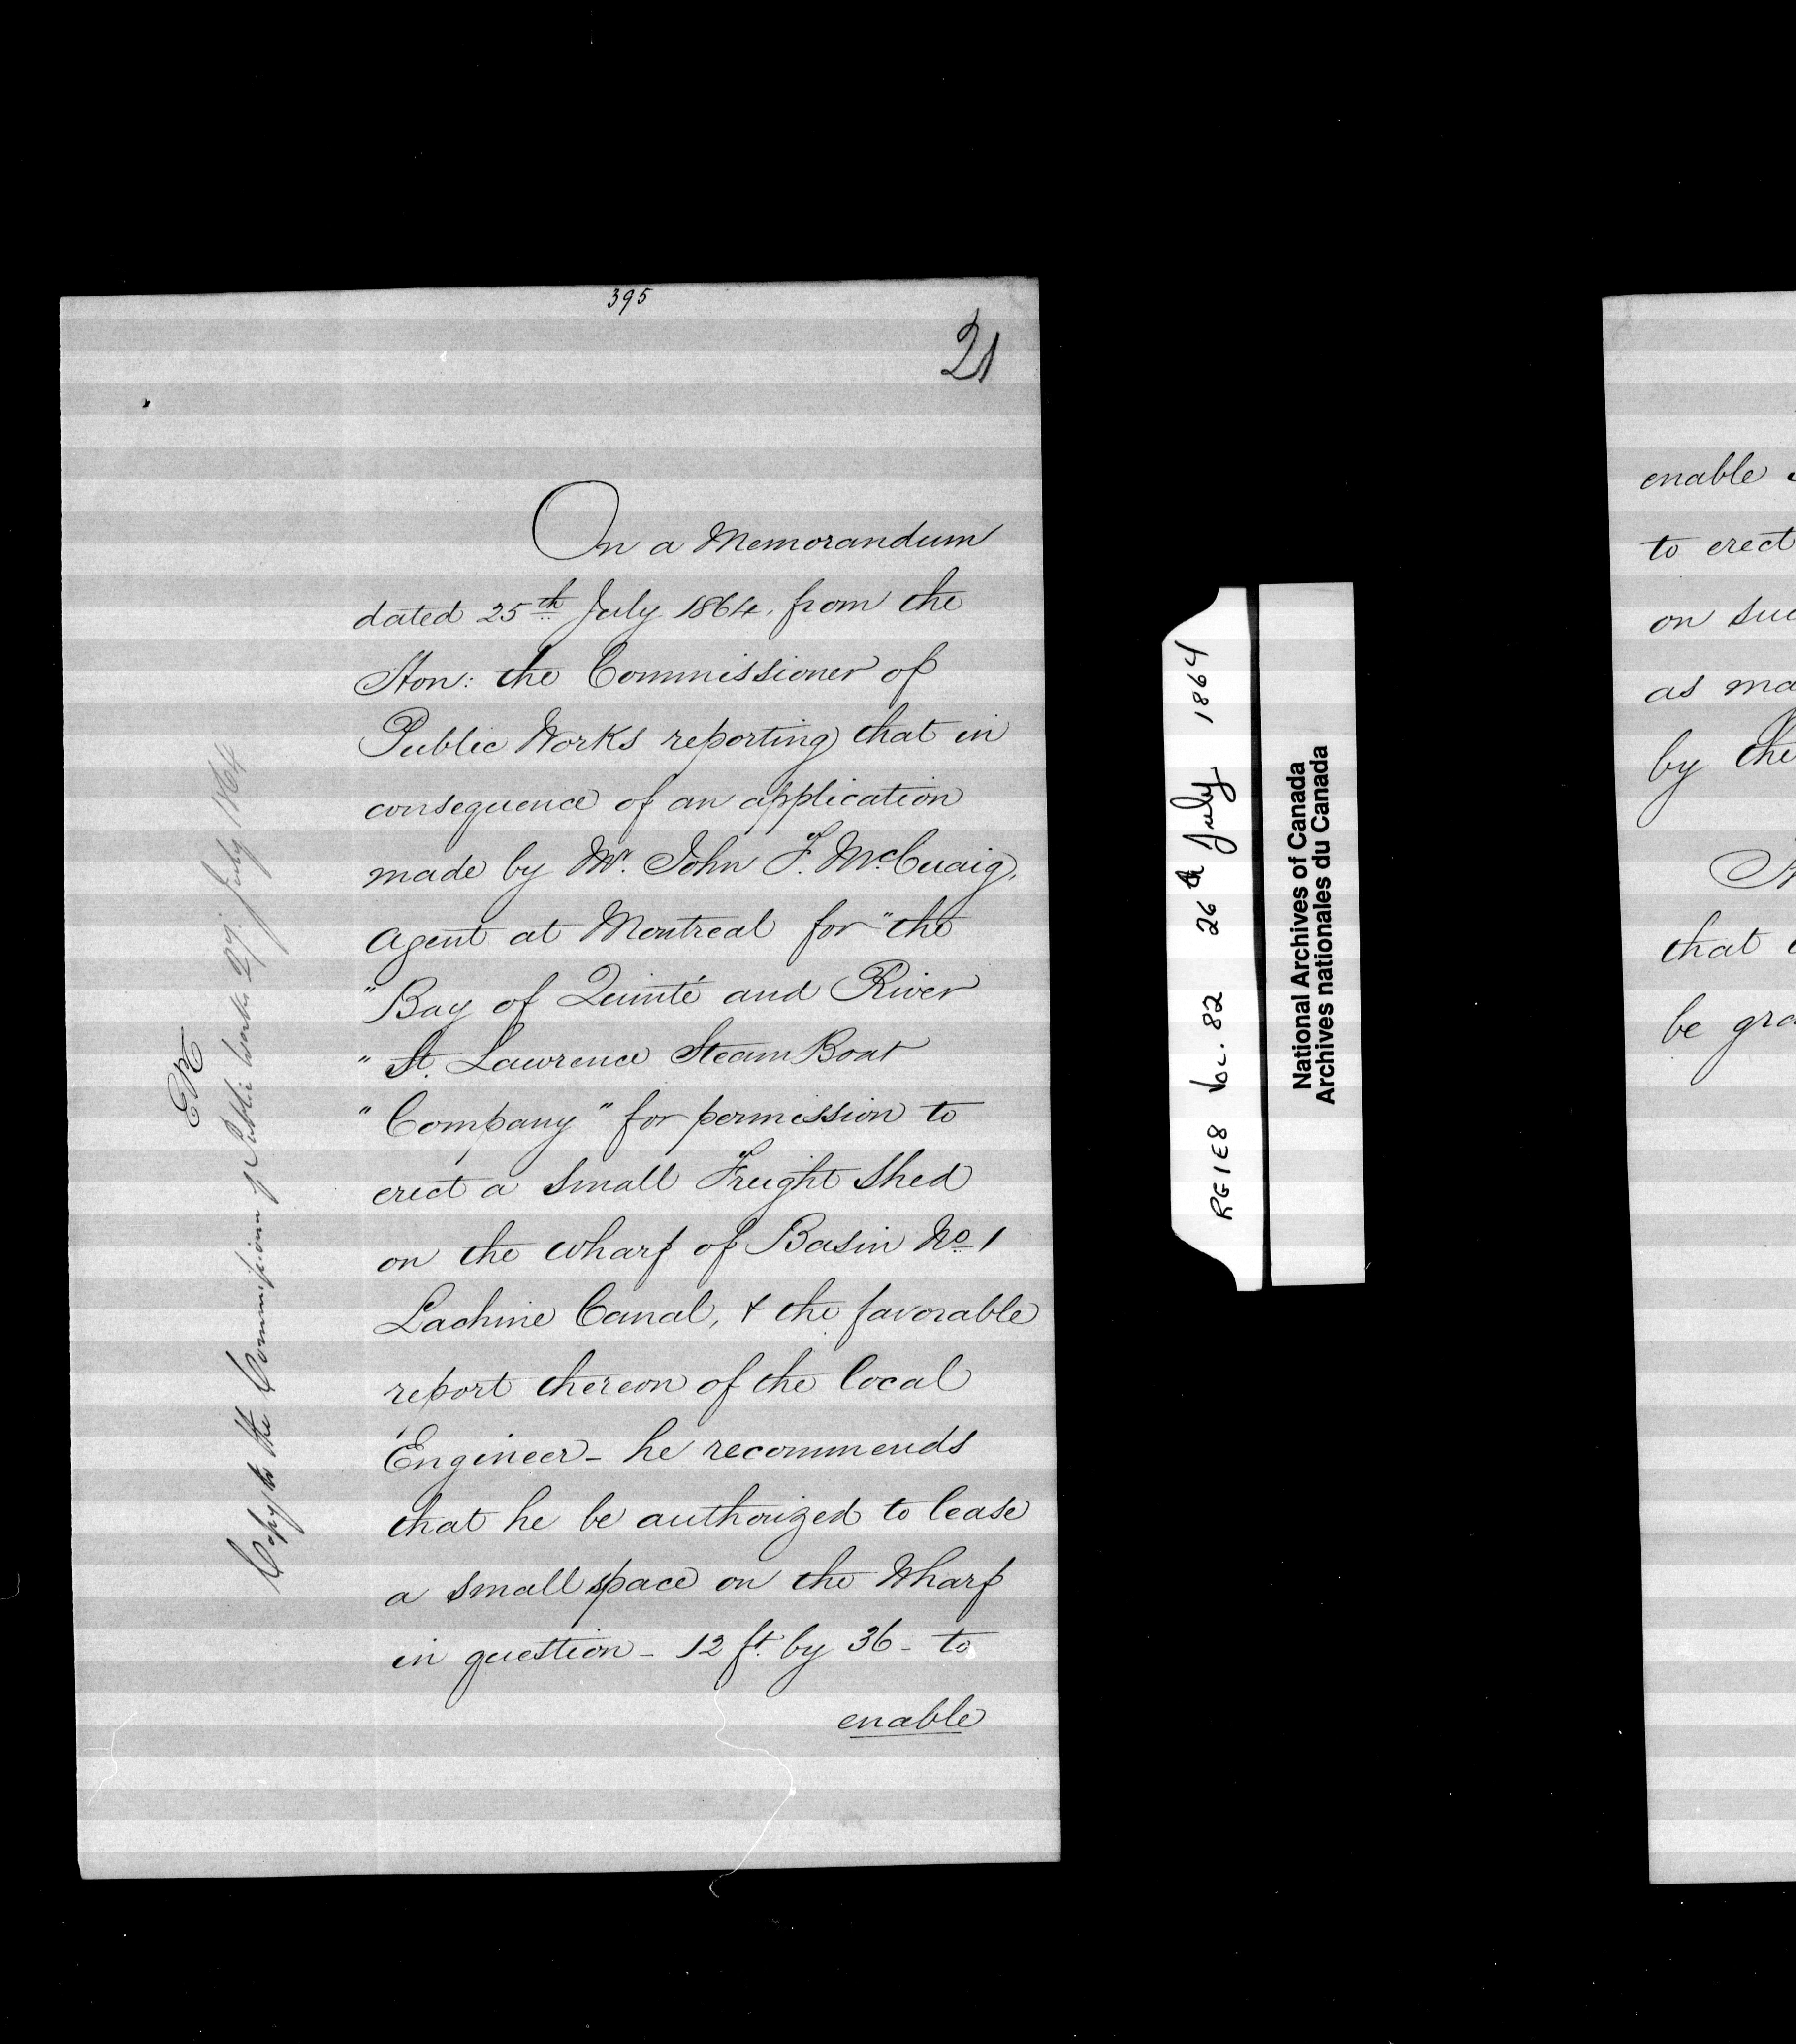 395
21
On a Memorandum
dated 25th July 1864, from the
Hon: the Commissioner of
Public Works reporting that in
consequence of an application
made by Mr. John F. McCuaig,
Agent at Montreal for "the
"Bay of Quinté and River
"St. Lawrence Steam Boat
"Company" for permission to
erect a small Freight Shed
on the wharf of Basin No 1
Lachine Canal, & the favorable
report thereon of the local
Engineer - he recommends
that he be authorized to lease
a small space on the Wharf
in question - 12 ft. by 36 - to
enable
Copy to the Commissioner of Public Works 29. July 1864
RG1E8 Vol. 82 26th July 1864
National Archives of Canada
Archives nationales du Canada
enable
to erect
on
as
by the
that
be